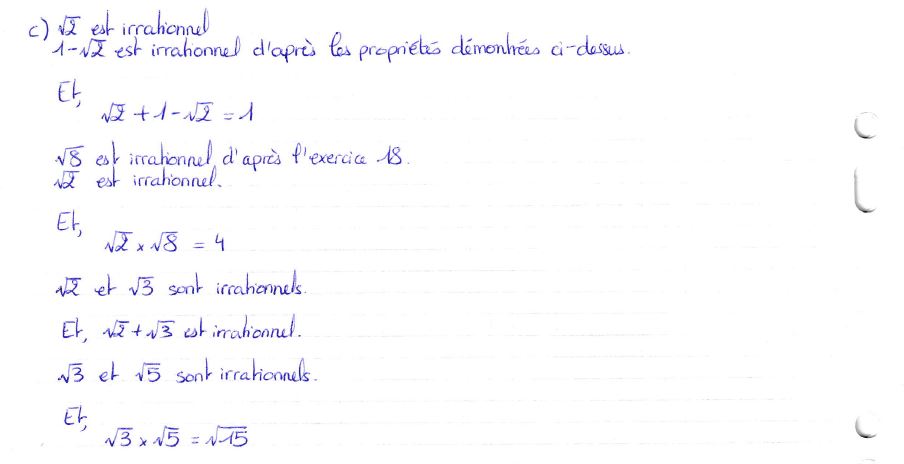 c) √2 est irrationnel
1-√2 est irrationnel d'après les propriétés démontrées ci-dessus.
Et,
√2 + 1 - √2 = 1
√8 est irrationnel d'après l'exercice 18.
√2 est irrationnel.
Et,
√2 × √8 = 4
√2 et √3 sont irrationnels.
Et, √2 + √3 est irrationnel.
√3 et √5 sont irrationnels.
Et,
√3 × √5 = √15